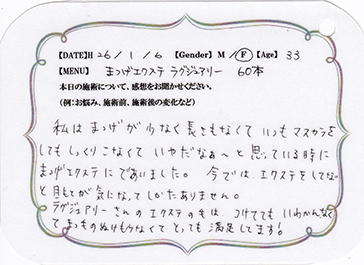 【DATE】H 26/1/6 【Gender】M/F【Age】33
【MENU】 まつげエクステ ラグジュアリー 60本
本日の施術について、感想をお聞かせください。
(例:お悩み、施術前、施術後の変化など)
私はまつげが少なく長さもなくていつもマスカラを
してもしっくりこなくていやだなぁ〜と思っている時に
まつげエクステにであいました。今では、エクステをしてない
と目もとが気になってしかたありません。
ラグジュアリーさんのエクステのもちは、つけてもいわかんなく
てまつものぬけもなくてとっても満足してます!